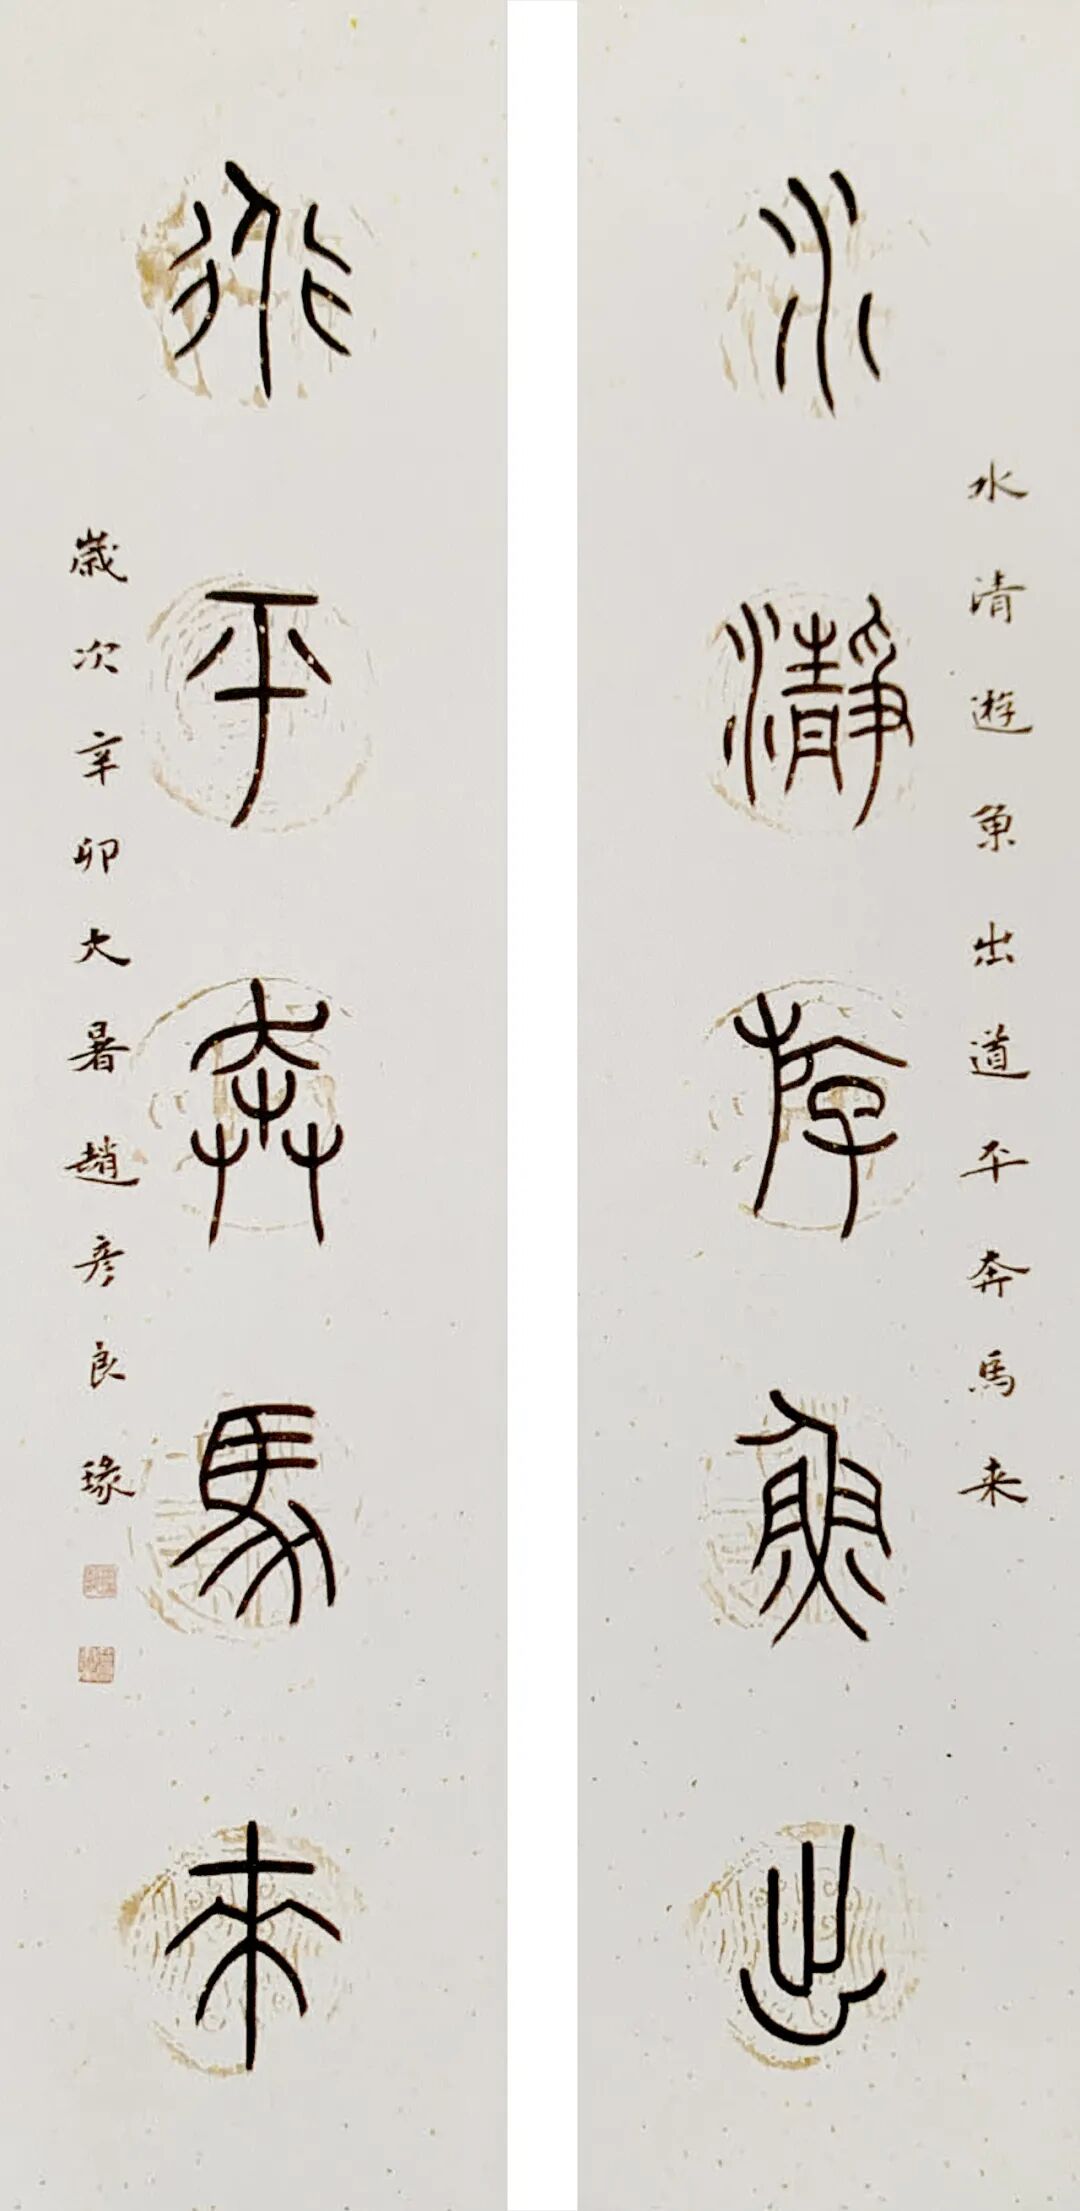 水清遊魚出道平奔馬来
水瀞斿魚出
道平奔馬來
歲次辛卯大暑趙彥良瑑